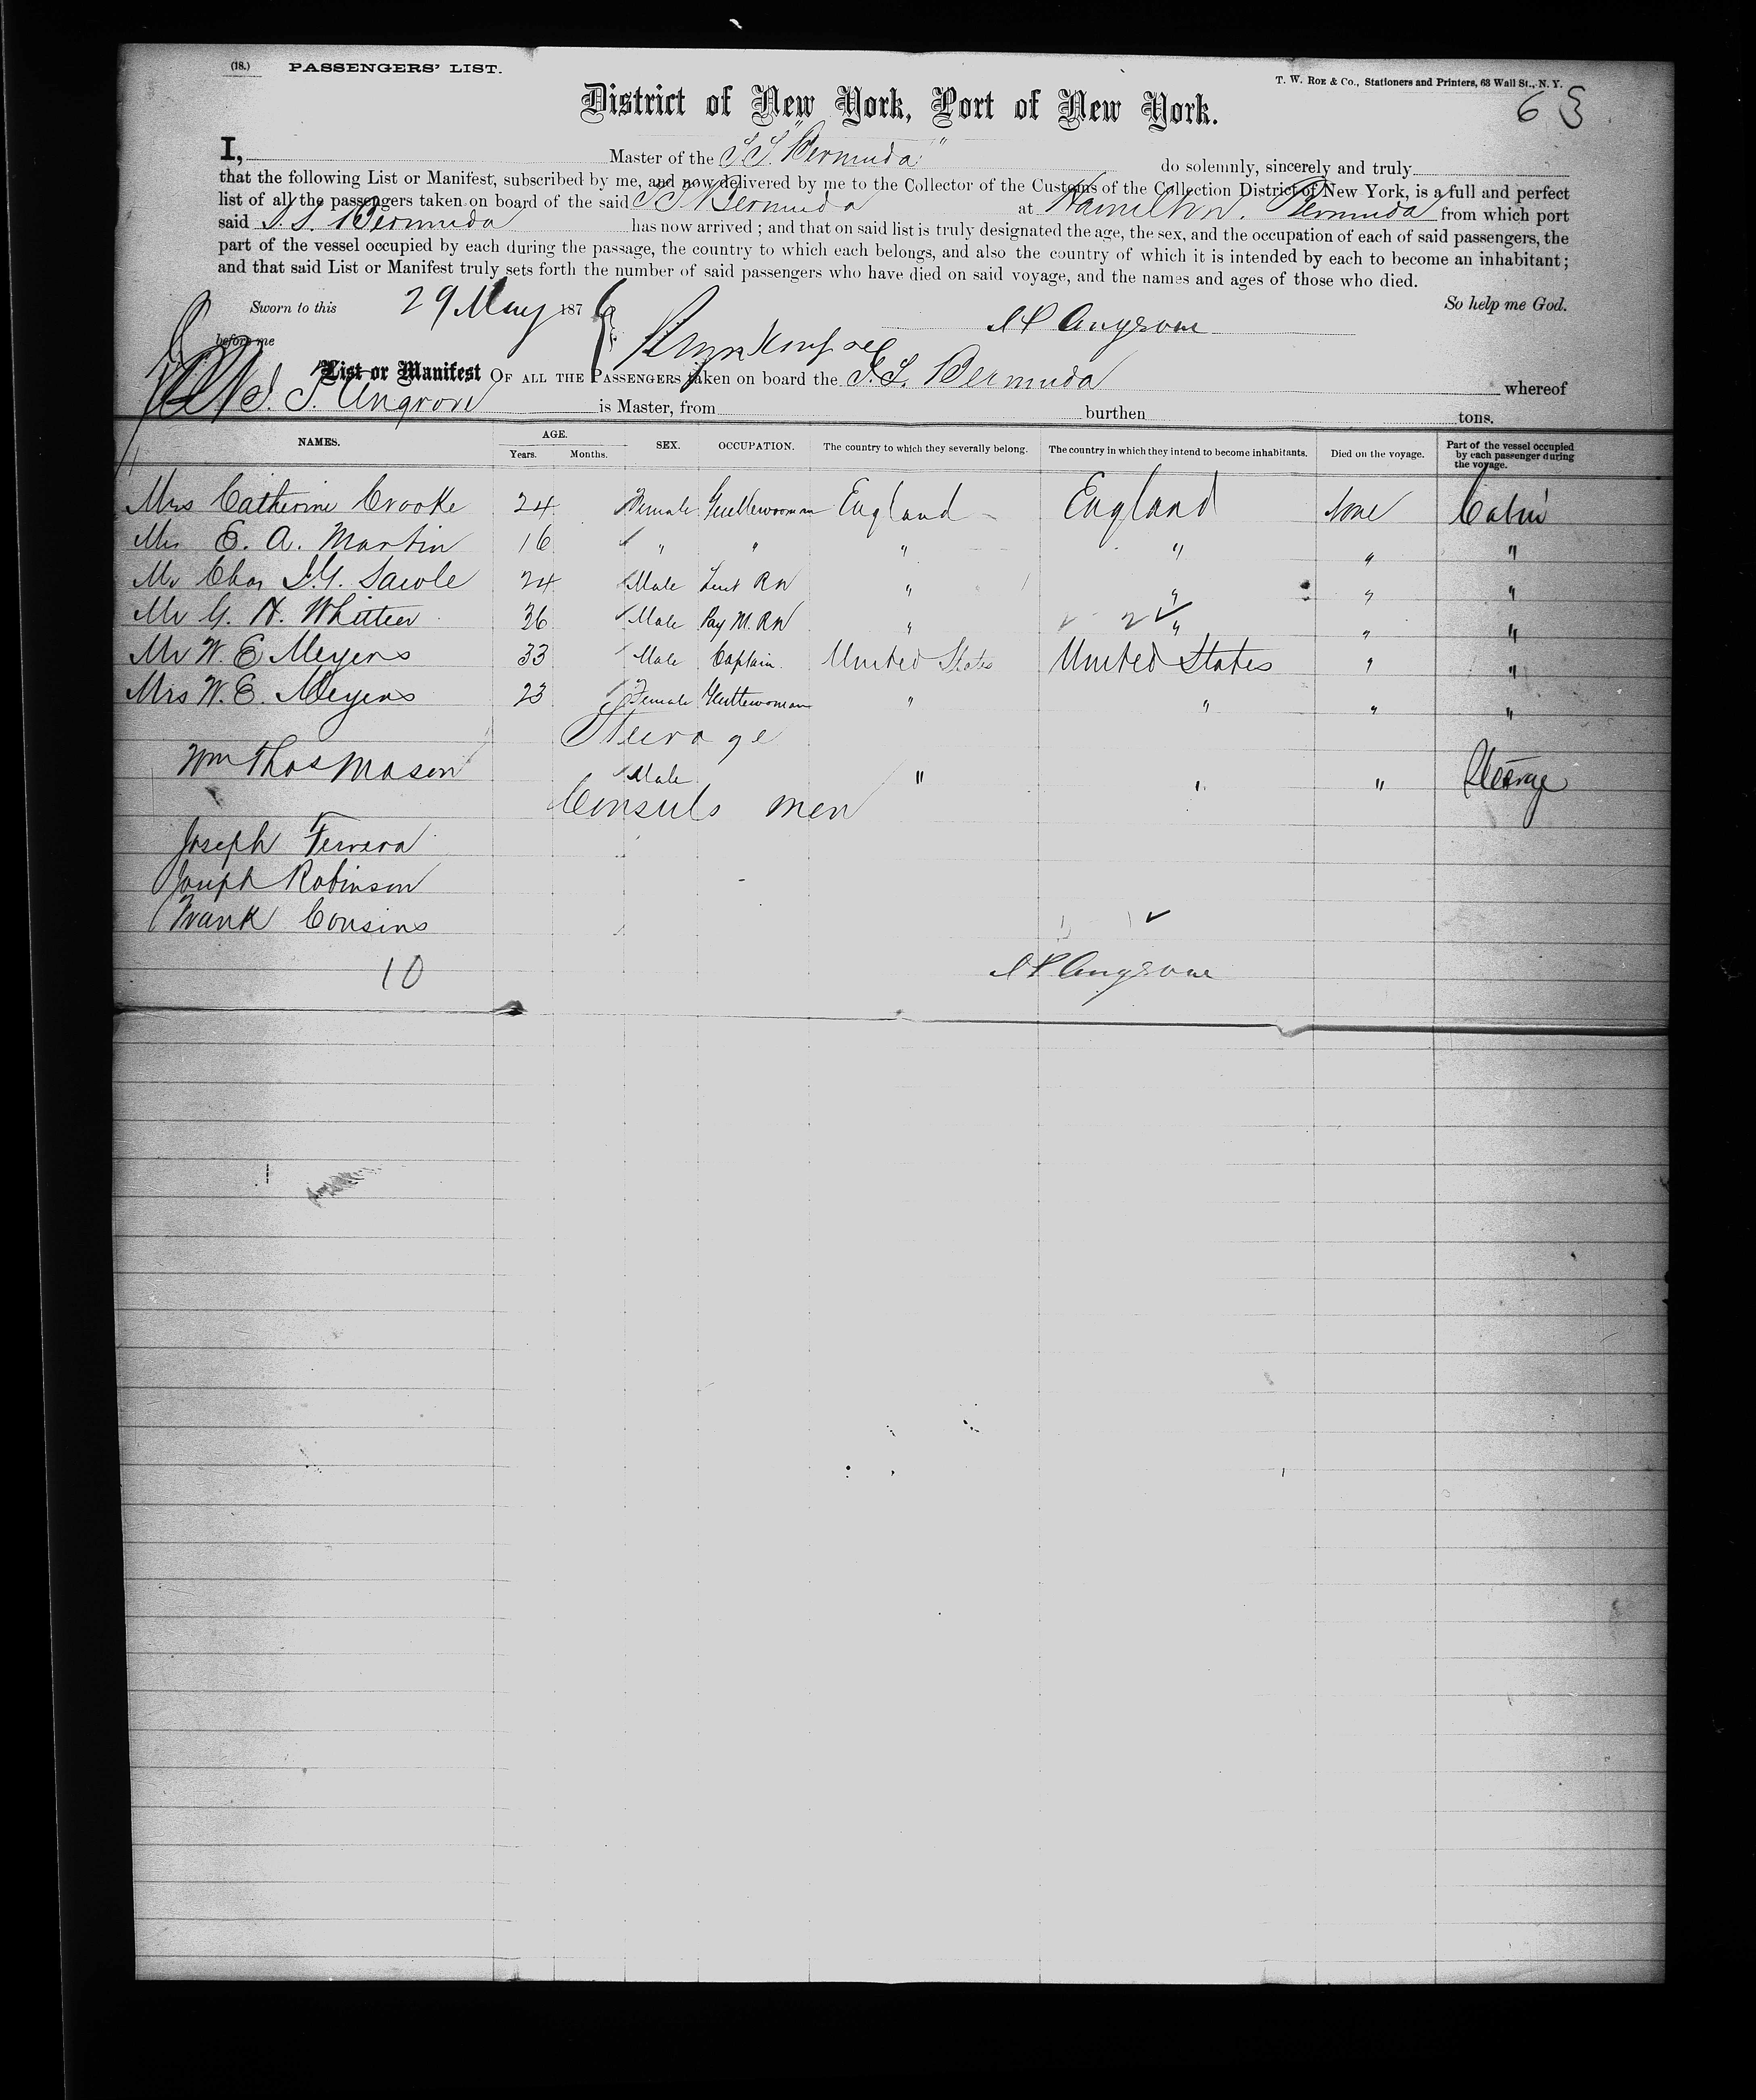 (18.) PASSENGERS' LIST.
T. W. ROE & Co., Stationers and Printers, 63 Wall St., N. Y.
District of New York, Port of New York.
6
I, Master of the S.S. "Bermuda" do solemnly, sincerely and truly
that the following List or Manifest, subscribed by me, and now delivered by me to the Collector of the Customs of the Collection District of New York, is a full and perfect
list of all the passengers taken on board of the said S S Bermuda at Hamilton. Bermuda from which port
said S. S. Bermuda has now arrived ; and that on said list is truly designated the age, the sex, and the occupation of each of said passengers, the
part of the vessel occupied by each during the passage, the country to which each belongs, and also the country of which it is intended by each to become an inhabitant ;
and that said List or Manifest truly sets forth the number of said passengers who have died on said voyage, and the names and ages of those who died.
Sworn to this 29 May 1876 So help me God.
before me
List or Manifest OF ALL THE PASSENGERS taken on board the S. S. Bermuda whereof
Angrove is Master, from burthen tons.
NAMES. AGE. Years. Months. SEX. OCCUPATION. The country to which they severally belong. The country in which they intend to become inhabitants. Died on the voyage. Part of the vessel occupied by each passenger during the voyage.
Mrs Catherine Crooke 24 Female Gentlewoman England England None Cabin
E. A. Martin 16 " " " " " "
Mr Chas 24 Male Lieut RN " " " "
Mr G. H. 36 Male Pay M. RN " 2 " " "
Mr W. E Meyers 33 Male Captain United States United States " "
Mrs W. E. Meyers 23 Female Gentlewoman " " " "
Steerage
Wm Thos Mason Male " " " Steerage
Consuls men
Joseph Ferrera
Joseph Robinson
Frank Cousins
10 Angrove